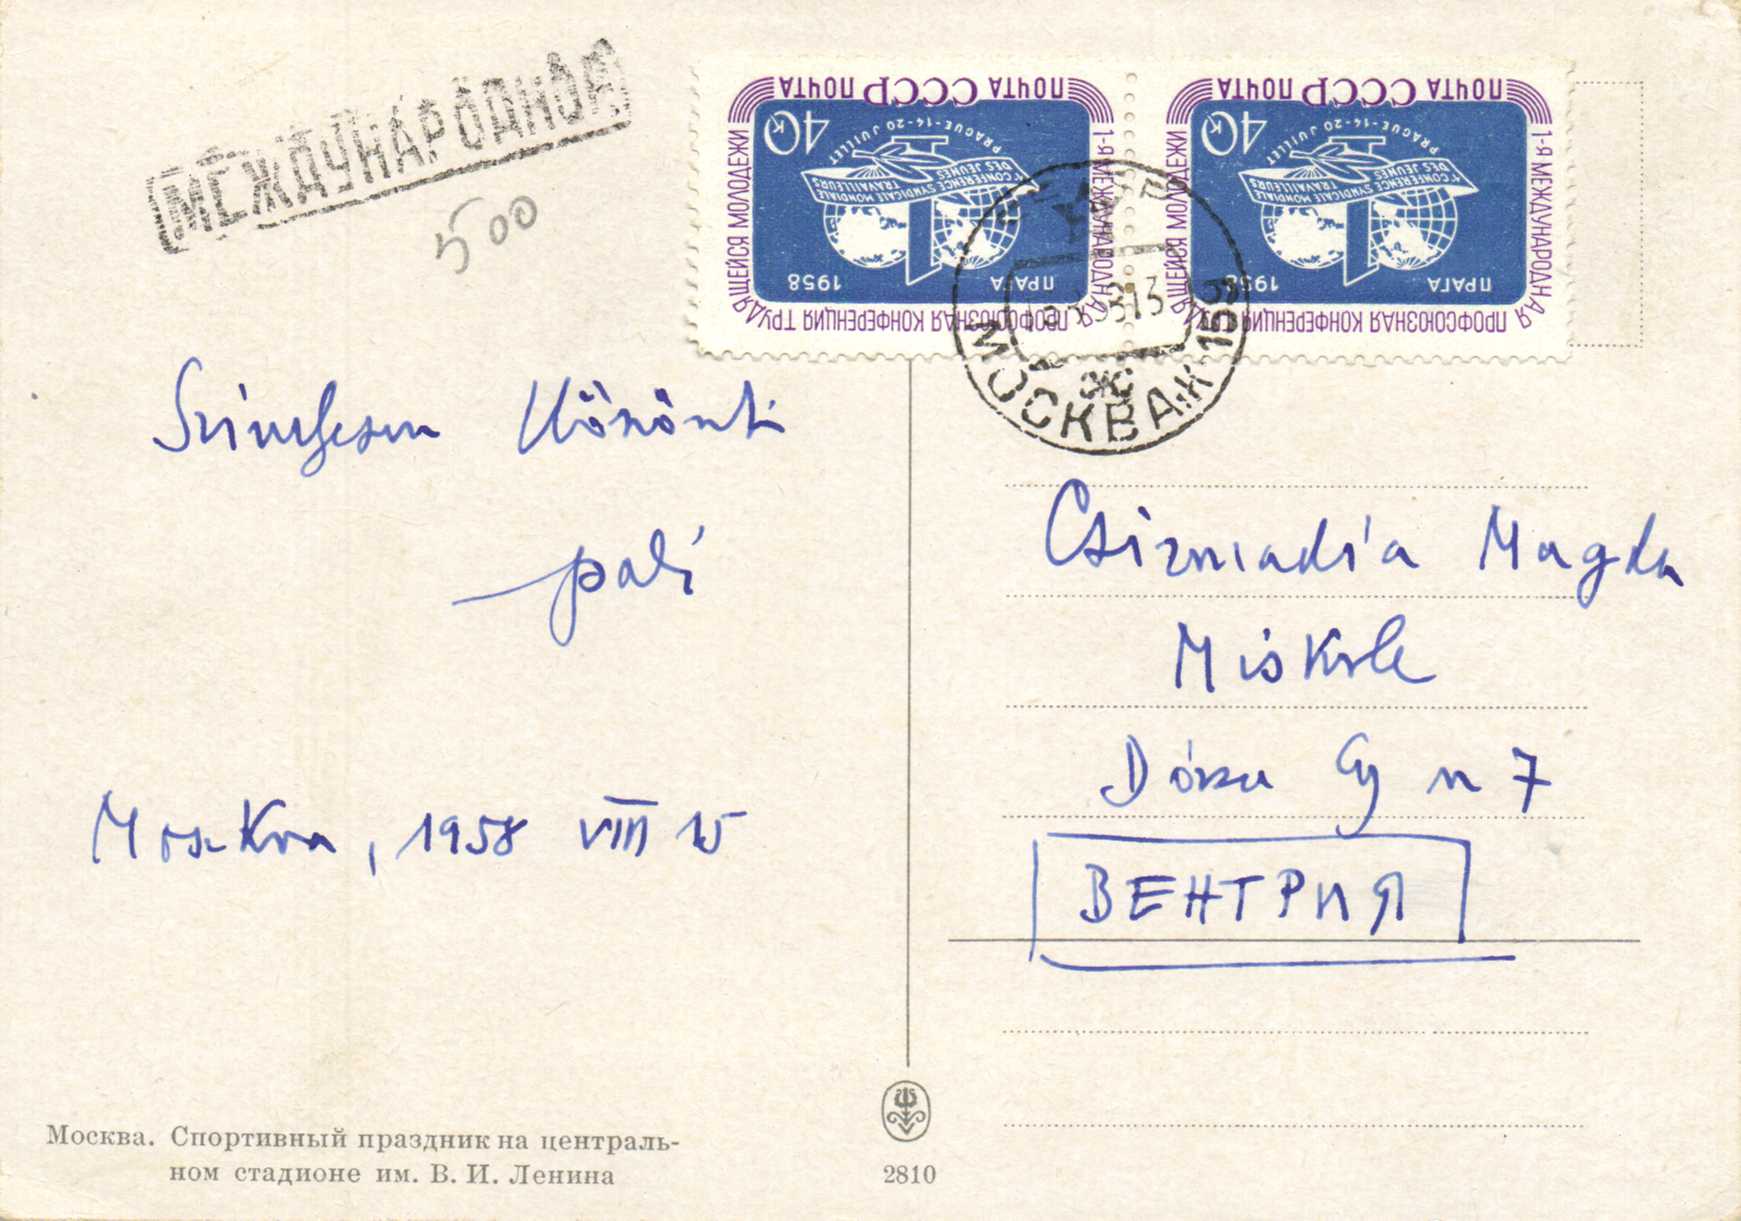 МЕЖДУНАРОДНОЕ
500
ПОЧТА СССР ПОЧТА
40 К
PRAGUE-14-20 JUILLET
1e CONFERENCE SYNDICALE MONDIALE
DES JEUNES TRAVAILLEURS
ПРАГА 1958
1-Я МЕЖДУНАРОДНАЯ ПРОФСОЮЗНАЯ КОНФЕРЕНЦИЯ ТРУДЯЩЕЙСЯ МОЛОДЕЖИ
ПОЧТА СССР ПОЧТА
40 К
PRAGUE-14-20 JUILLET
1e CONFERENCE SYNDICALE MONDIALE
DES JEUNES TRAVAILLEURS
ПРАГА 1958
1-Я МЕЖДУНАРОДНАЯ ПРОФСОЮЗНАЯ КОНФЕРЕНЦИЯ ТРУДЯЩЕЙСЯ МОЛОДЕЖИ
МОСКВА
Szívélyesen köszönti
pali
Moszkva, 1958 VIII 15
Csizmadia Magda
Miskolc
Dózsa Gy u 7
ВЕНГРИЯ
Москва. Спортивный праздник на централь-
ном стадионе им. В. И. Ленина
2810